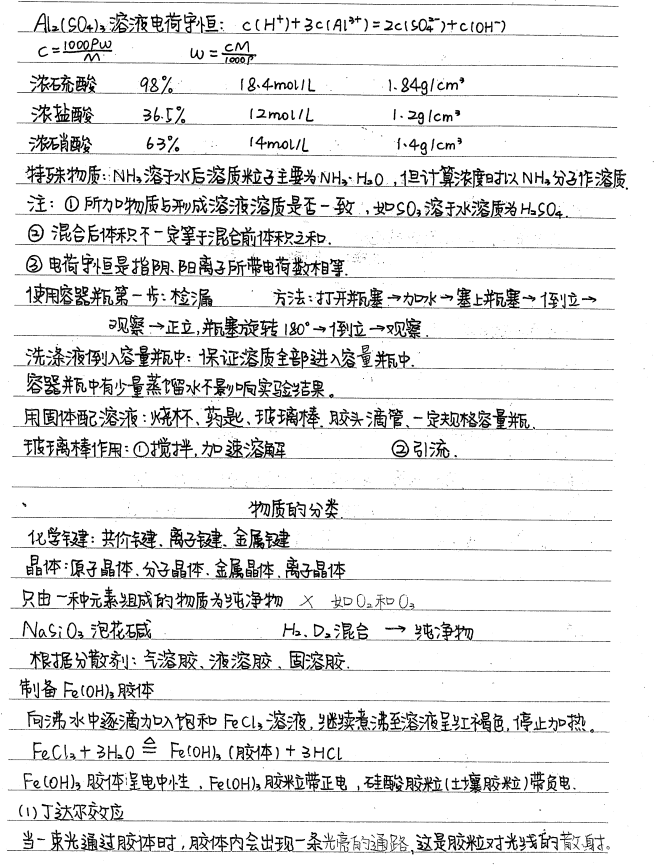 Al₂(SO₄)₃溶液电荷守恒: c(H⁺)+3c(Al³⁺)=2c(SO₄²⁻)+c(OH⁻)
C=1000ρw/M w=CM/1000ρ
浓硫酸 98% 18.4mol/L 1.84g/cm³
浓盐酸 36.5% 12mol/L 1.2g/cm³
浓硝酸 63% 14mol/L 1.4g/cm³
特殊物质:NH₃溶于水后溶质粒子主要为NH₃·H₂O,但计算浓度时以NH₃分子作溶质.
注:①所加物质与形成溶液溶质是否一致,如SO₃溶于水溶质为H₂SO₄.
②混合后体积不一定等于混合前体积之和.
③电荷守恒是指阴、阳离子所带电荷数相等.
使用容器瓶第一步:检漏 方法:打开瓶塞→加水→塞上瓶塞→倒立→
观察→正立,瓶塞旋转180°→倒立→观察.
洗涤液倒入容量瓶中:保证溶质全部进入容量瓶中.
容器瓶中有少量蒸馏水不影响实验结果。
用固体配溶液:烧杯、药匙、玻璃棒、胶头滴管、一定规格容量瓶.
玻璃棒作用:①搅拌,加速溶解 ②引流.
物质的分类.
化学键:共价键、离子键、金属键
晶体:原子晶体、分子晶体、金属晶体、离子晶体
只由一种元素组成的物质为纯净物 × 如O₂和O₃
NaSiO₃泡花碱 H₂、D₂混合 → 纯净物
根据分散剂:气溶胶、液溶胶、固溶胶.
制备Fe(OH)₃胶体
向沸水中逐滴加入饱和FeCl₃溶液,继续煮沸至溶液呈红褐色,停止加热。
FeCl₃+3H₂O ≜ Fe(OH)₃(胶体)+3HCl
Fe(OH)₃胶体呈电中性,Fe(OH)₃胶粒带正电,硅酸胶粒(土壤胶粒)带负电.
(1)丁达尔效应
当一束光通过胶体时,胶体内会出现一条光亮的通路,这是胶粒对光线的散射。